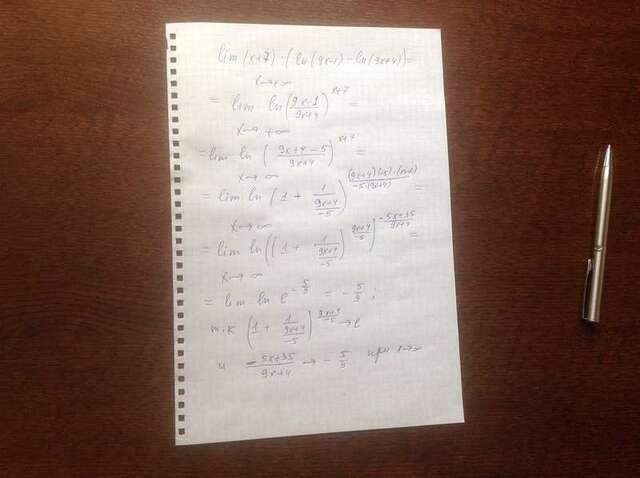 lim (x+7)·(ln(9x-1)-ln(9x+4))=
x→∞
= lim ln((9x-1)/(9x+4))^(x+7)
x→+∞
= lim ln((9x+4-5)/(9x+4))^(x+7) =
x→∞
= lim ln(1 + 1/((9x+4)/-5))^((9x+4)(-5)·(x+7)/(-5·(9x+4))) =
x→∞
= lim ln((1 + 1/((9x+4)/-5))^((9x+4)/-5))^((-5x+35)/(9x+4)) =
x→∞
= lim ln e^(-5/9) = -5/9;
т.к (1 + 1/((9x+4)/-5))^((9x+4)/-5) → e
и (-5x+35)/(9x+4) → -5/9 при x→∞